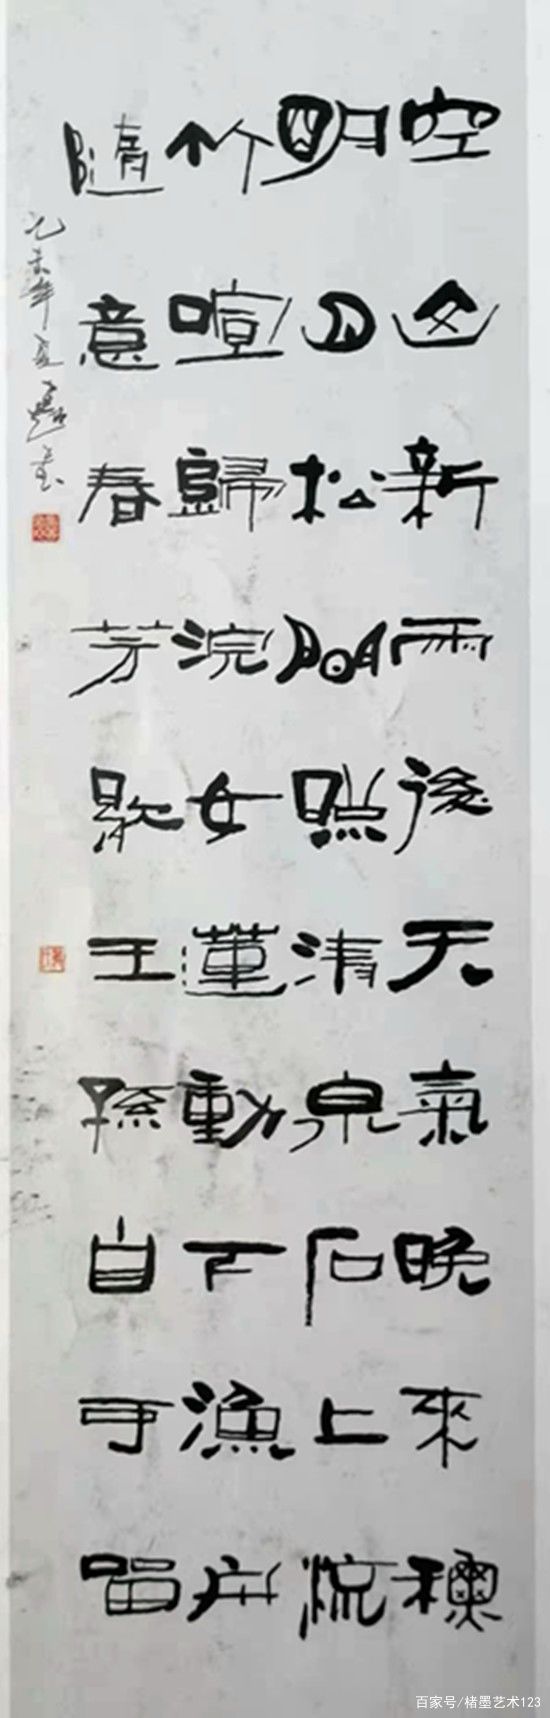 空山新雨後天氣晚來穐
明月松間照清泉石上流
竹喧歸浣女蓮動下漁舟
隨意春芳歇王孫自可留
乙未年夏
百家号/楮墨艺术123